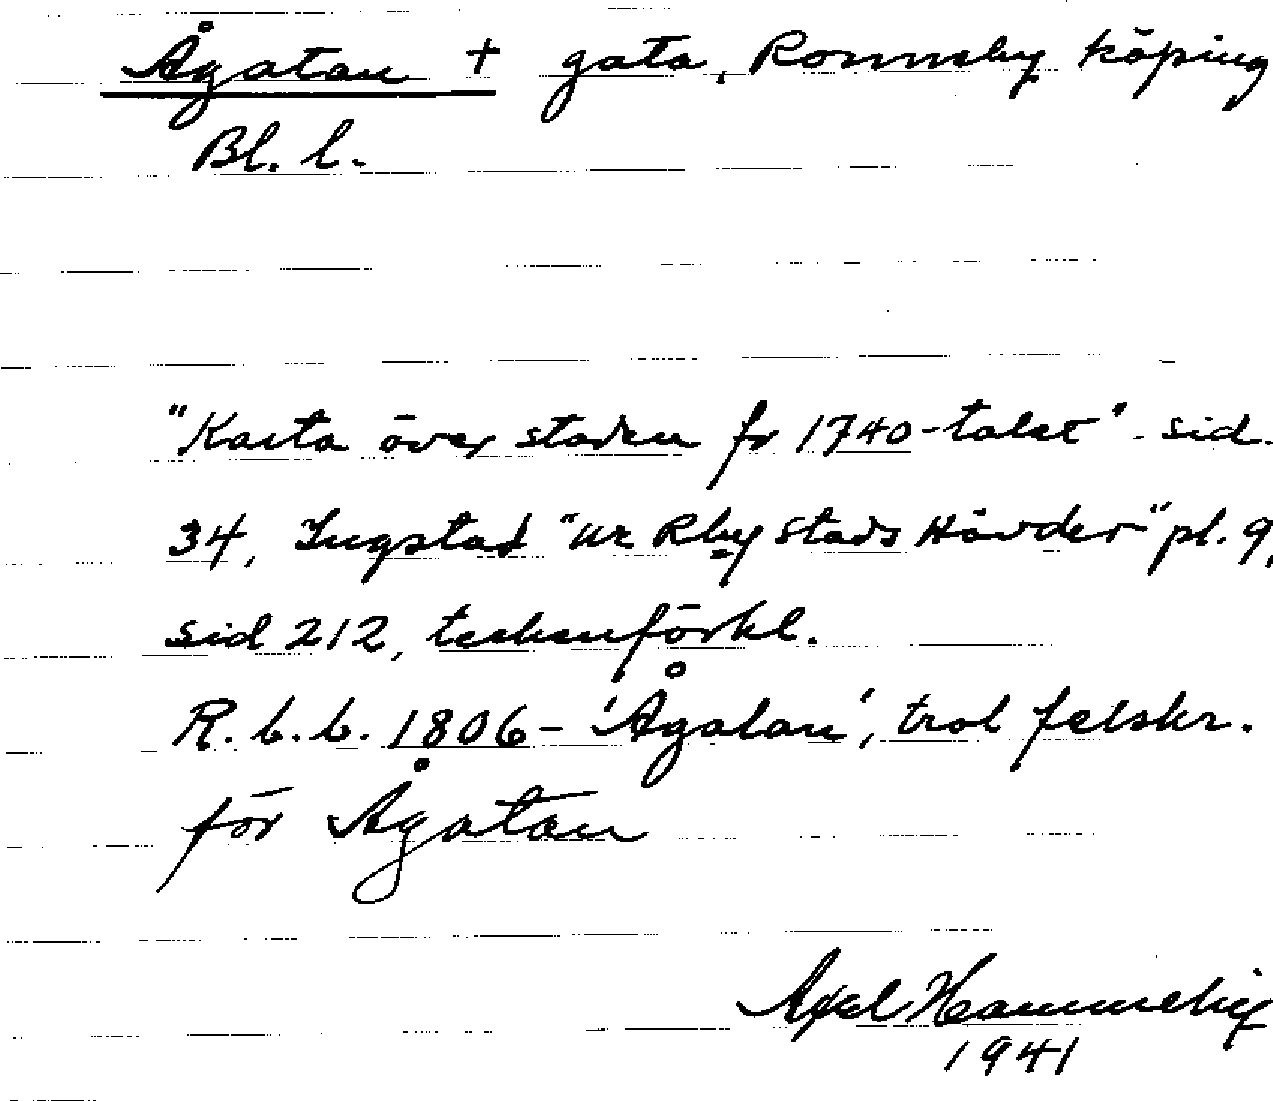 Ågatan † gata, Ronneby köping
Bl. l.
"Karta över staden fr 1740-talet" - sid.
34, Ingstad "Ur Rby Stads Hävder" pl. 9,
sid 212, teckenförkl.
R. b. b. 1806 - 'Ågalan', trol felskr.
för Ågatan
Axel
1941